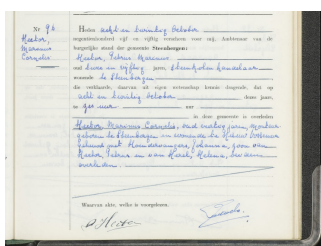 Nr 96
Hector,
Marinus
Cornelis
Heden acht en twintig October
negentienhonderd vijf en vijftig verscheen voor mij, Ambtenaar van de
burgerlijke stand der gemeente Steenbergen:
Hector, Petrus Marinus
oud twee en vijftig jaren, steenkolen handelaar
wonende te Steenbergen
die verklaarde, daarvan uit eigen wetenschap kennis dragende, dat op
acht en twintig October dezer jaars,
te zes uur uur
in deze gemeente is overleden
Hector, Marinus Cornelis, oud jaren,
geboren te Steenbergen en wonende te
gehuwd met Johanna, zoon van
Hector, Petrus en van Helena, beiden
overleden.
Waarvan akte, welke is voorgelezen.
Hector